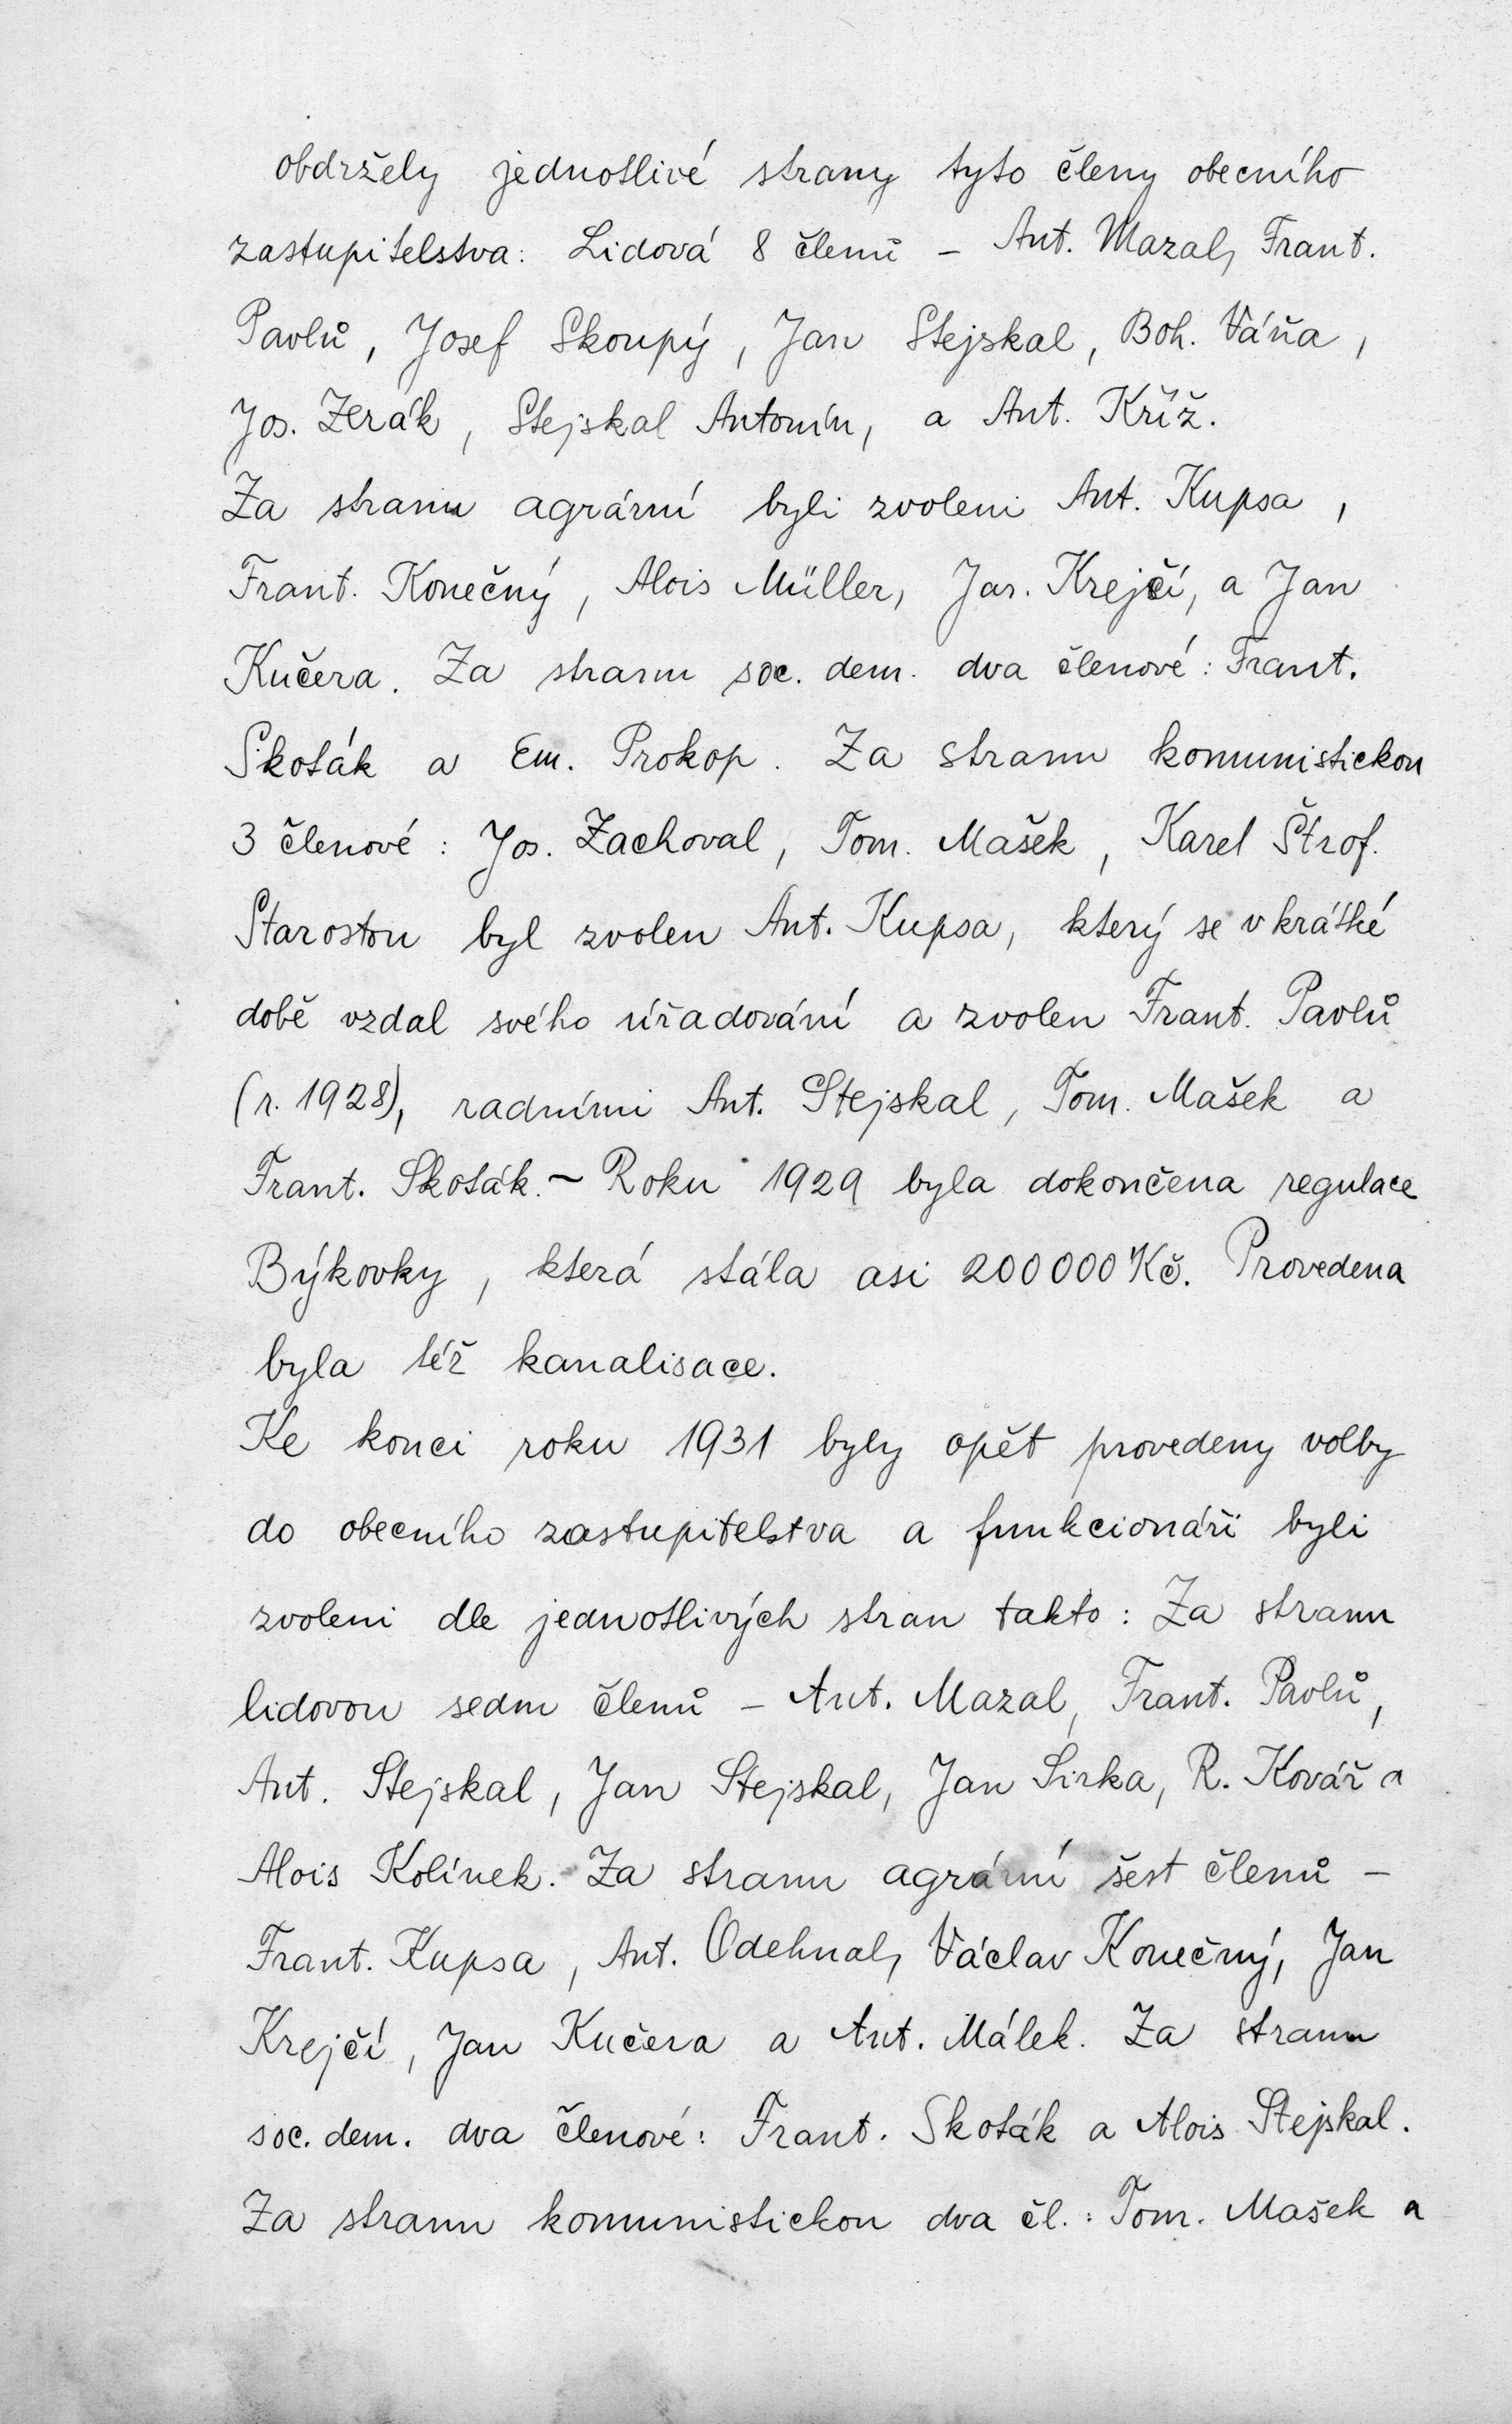 obdržely jednotlivé strany tyto členy obecního
zastupitelstva: Lidová 8 členů – Ant. Mazal, Frant.
Pavlů, Josef Skoupý, Jan Stejskal, Boh. Váňa,
Jos. Zerák, Stejskal Antonín, a Ant. Kříž.
Za stranu agrární byli zvoleni Ant. Kupsa,
Frant. Konečný, Alois Müller, Jar. Krejčí, a Jan
Kučera. Za stranu soc. dem. dva členové: Frant.
Skoták a Em. Prokop. Za stranu komunistickou
3 členové: Jos. Zachoval, Tom. Mašek, Karel Štrof.
Starostou byl zvolen Ant. Kupsa, který se v krátké
době vzdal svého úřadování a zvolen Frant. Pavlů
(r. 1928), radními Ant. Stejskal, Tom. Mašek a
Frant. Skoták. ~ Roku 1929 byla dokončena regulace
Býkovky, která stála asi 200000 Kč. Provedena
byla též kanalisace.
Ke konci roku 1931 byly opět provedeny volby
do obecního zastupitelstva a funkcionáři byli
zvoleni dle jednotlivých stran takto: Za stranu
lidovou sedm členů – Ant. Mazal, Frant. Pavlů,
Ant. Stejskal, Jan Stejskal, Jan Sirka, R. Kovář a
Alois Kolínek. – Za stranu agrární šest členů –
Frant. Kupsa, Ant. Odehnal, Václav Konečný, Jan
Krejčí, Jan Kučera a Ant. Málek. Za stranu
soc. dem. dva členové: Frant. Skoták a Alois Stejskal.
Za stranu komunistickou dva čl.: Tom. Mašek a